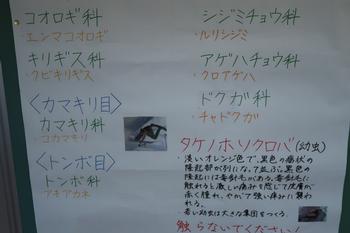 コオロギ科
・エンマコオロギ
キリギス科
・クビキリギス
〈カマキリ目〉
カマキリ科
・コカマキリ
〈トンボ目〉
トンボ科
・アキアカネ
シジミチョウ科
・ルリシジミ
アゲハチョウ科
・クロアゲハ
ドクガ科
・チャドクガ
タケノホソクロバ(幼虫)
・淡いオレンジ色で、黒色の瘤状の
隆起部が列になって並ぶ。黒色の
隆起には毒針毛がある。毒針毛に
触れると激しい痛みを感じて皮膚が
赤く腫れ、やがて強い痛みに襲わ
れる。
・若い幼虫は大きな集団をつくる。
触らないでください!